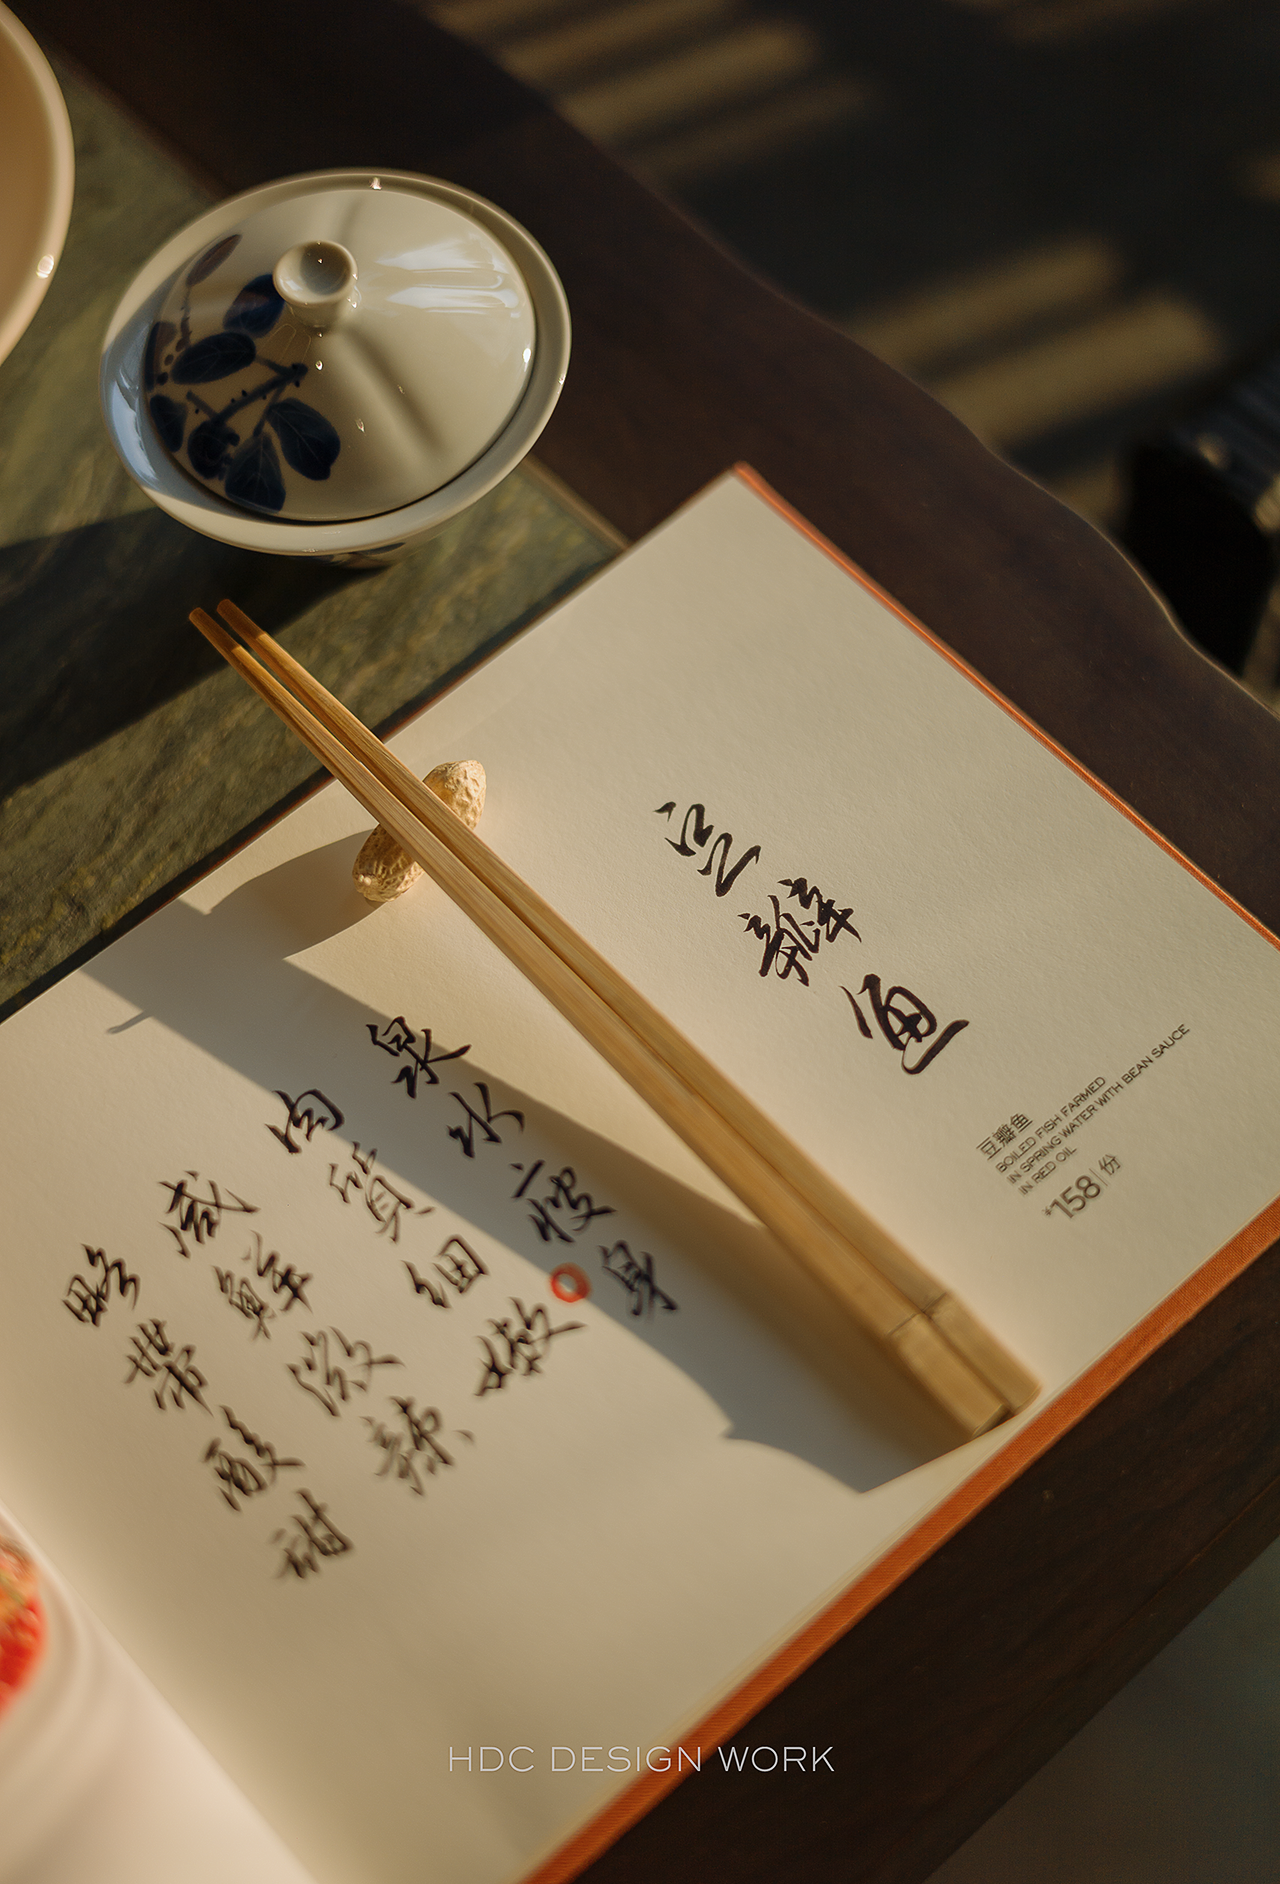 豆瓣鱼
豆瓣鱼
BOILED FISH FARMED
IN SPRING WATER WITH BEAN SAUCE
IN RED OIL
¥158|份
泉水瘦身
肉質细嫩
咸鲜微辣
略带酸甜
HDC DESIGN WORK